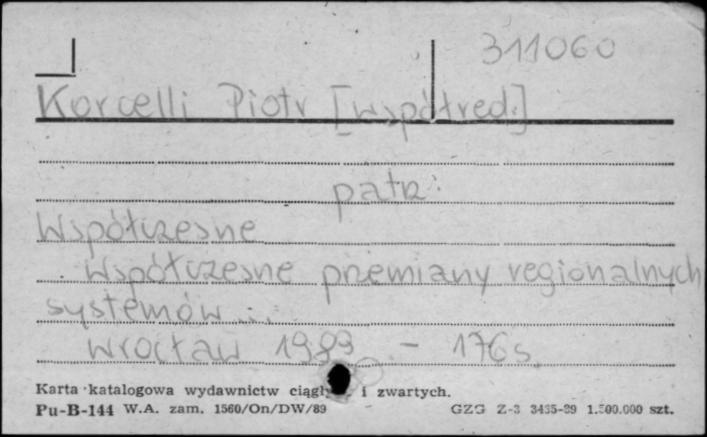 311060
Korcelli Piotr [współred.]
patrz:
Współczesne
Współczesne przemiany regionalnych
systemów...
Wrocław 1989 - 176 s.
Karta katalogowa wydawnictw i zwartych.
Pu-B-144 W.A. zam. 1560/On/DW/89 GZG Z-3 3435-89 1.500.000 szt.